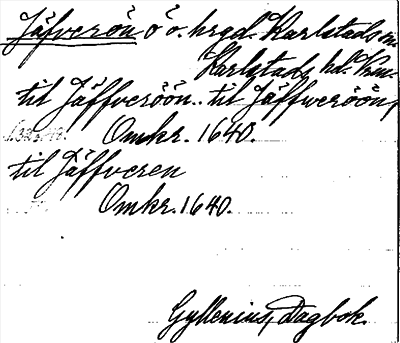 Jäfverön ö o. hrgd. Karlstads
Karlstads hd.
til Jäffveröön.. til Jäffweröön,
Omkr. 1640.
til Jäffveren
Omkr. 1640.
Gyllenius, Dagbok.